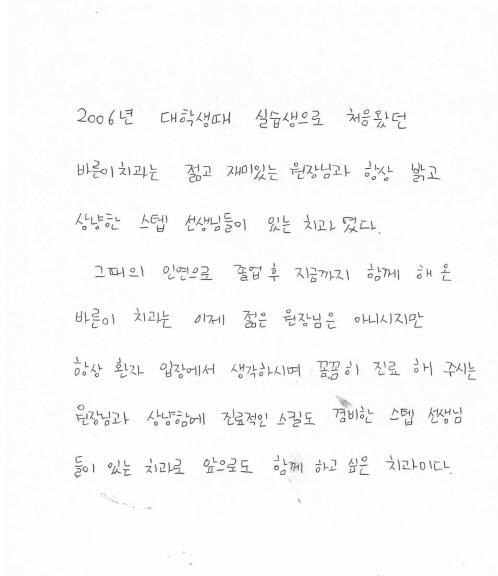 2006년 대학생때 실습생으로 처음왔던
바른이치과는 젊고 재미있는 원장님과 항상 밝고
상냥한 스텝 선생님들이 있는 치과 였다.
그때의 인연으로 졸업 후 지금까지 함께 해 온
바른이 치과는 이제 젊은 원장님은 아니시지만
항상 환자 입장에서 생각하시며 꼼꼼히 진료 해 주시는
원장님과 상냥함에 진료적인 스킬도 겸비한 스텝 선생님
들이 있는 치과로 앞으로도 함께 하고 싶은 치과이다.